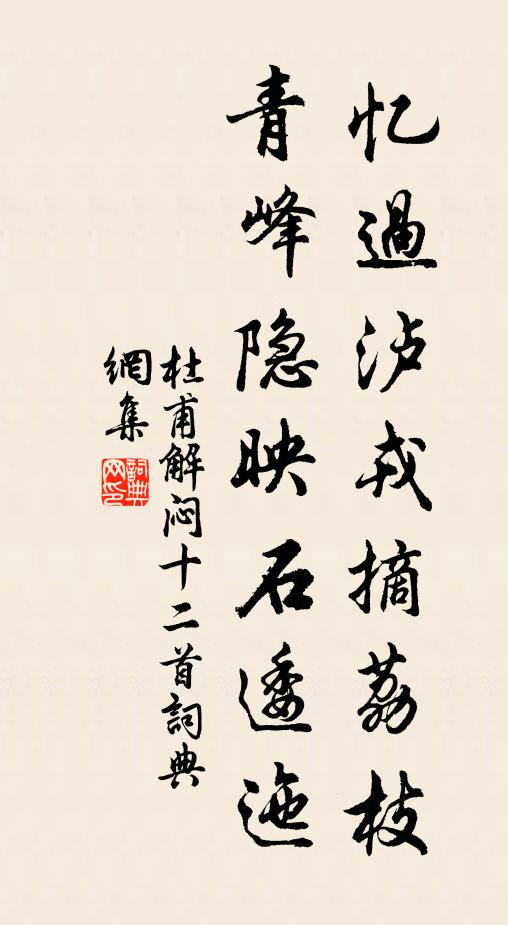 忆過泸戎摘荔枝
青峰隐映石逶迤
杜甫解闷十二首詞典
網集
詞典网印